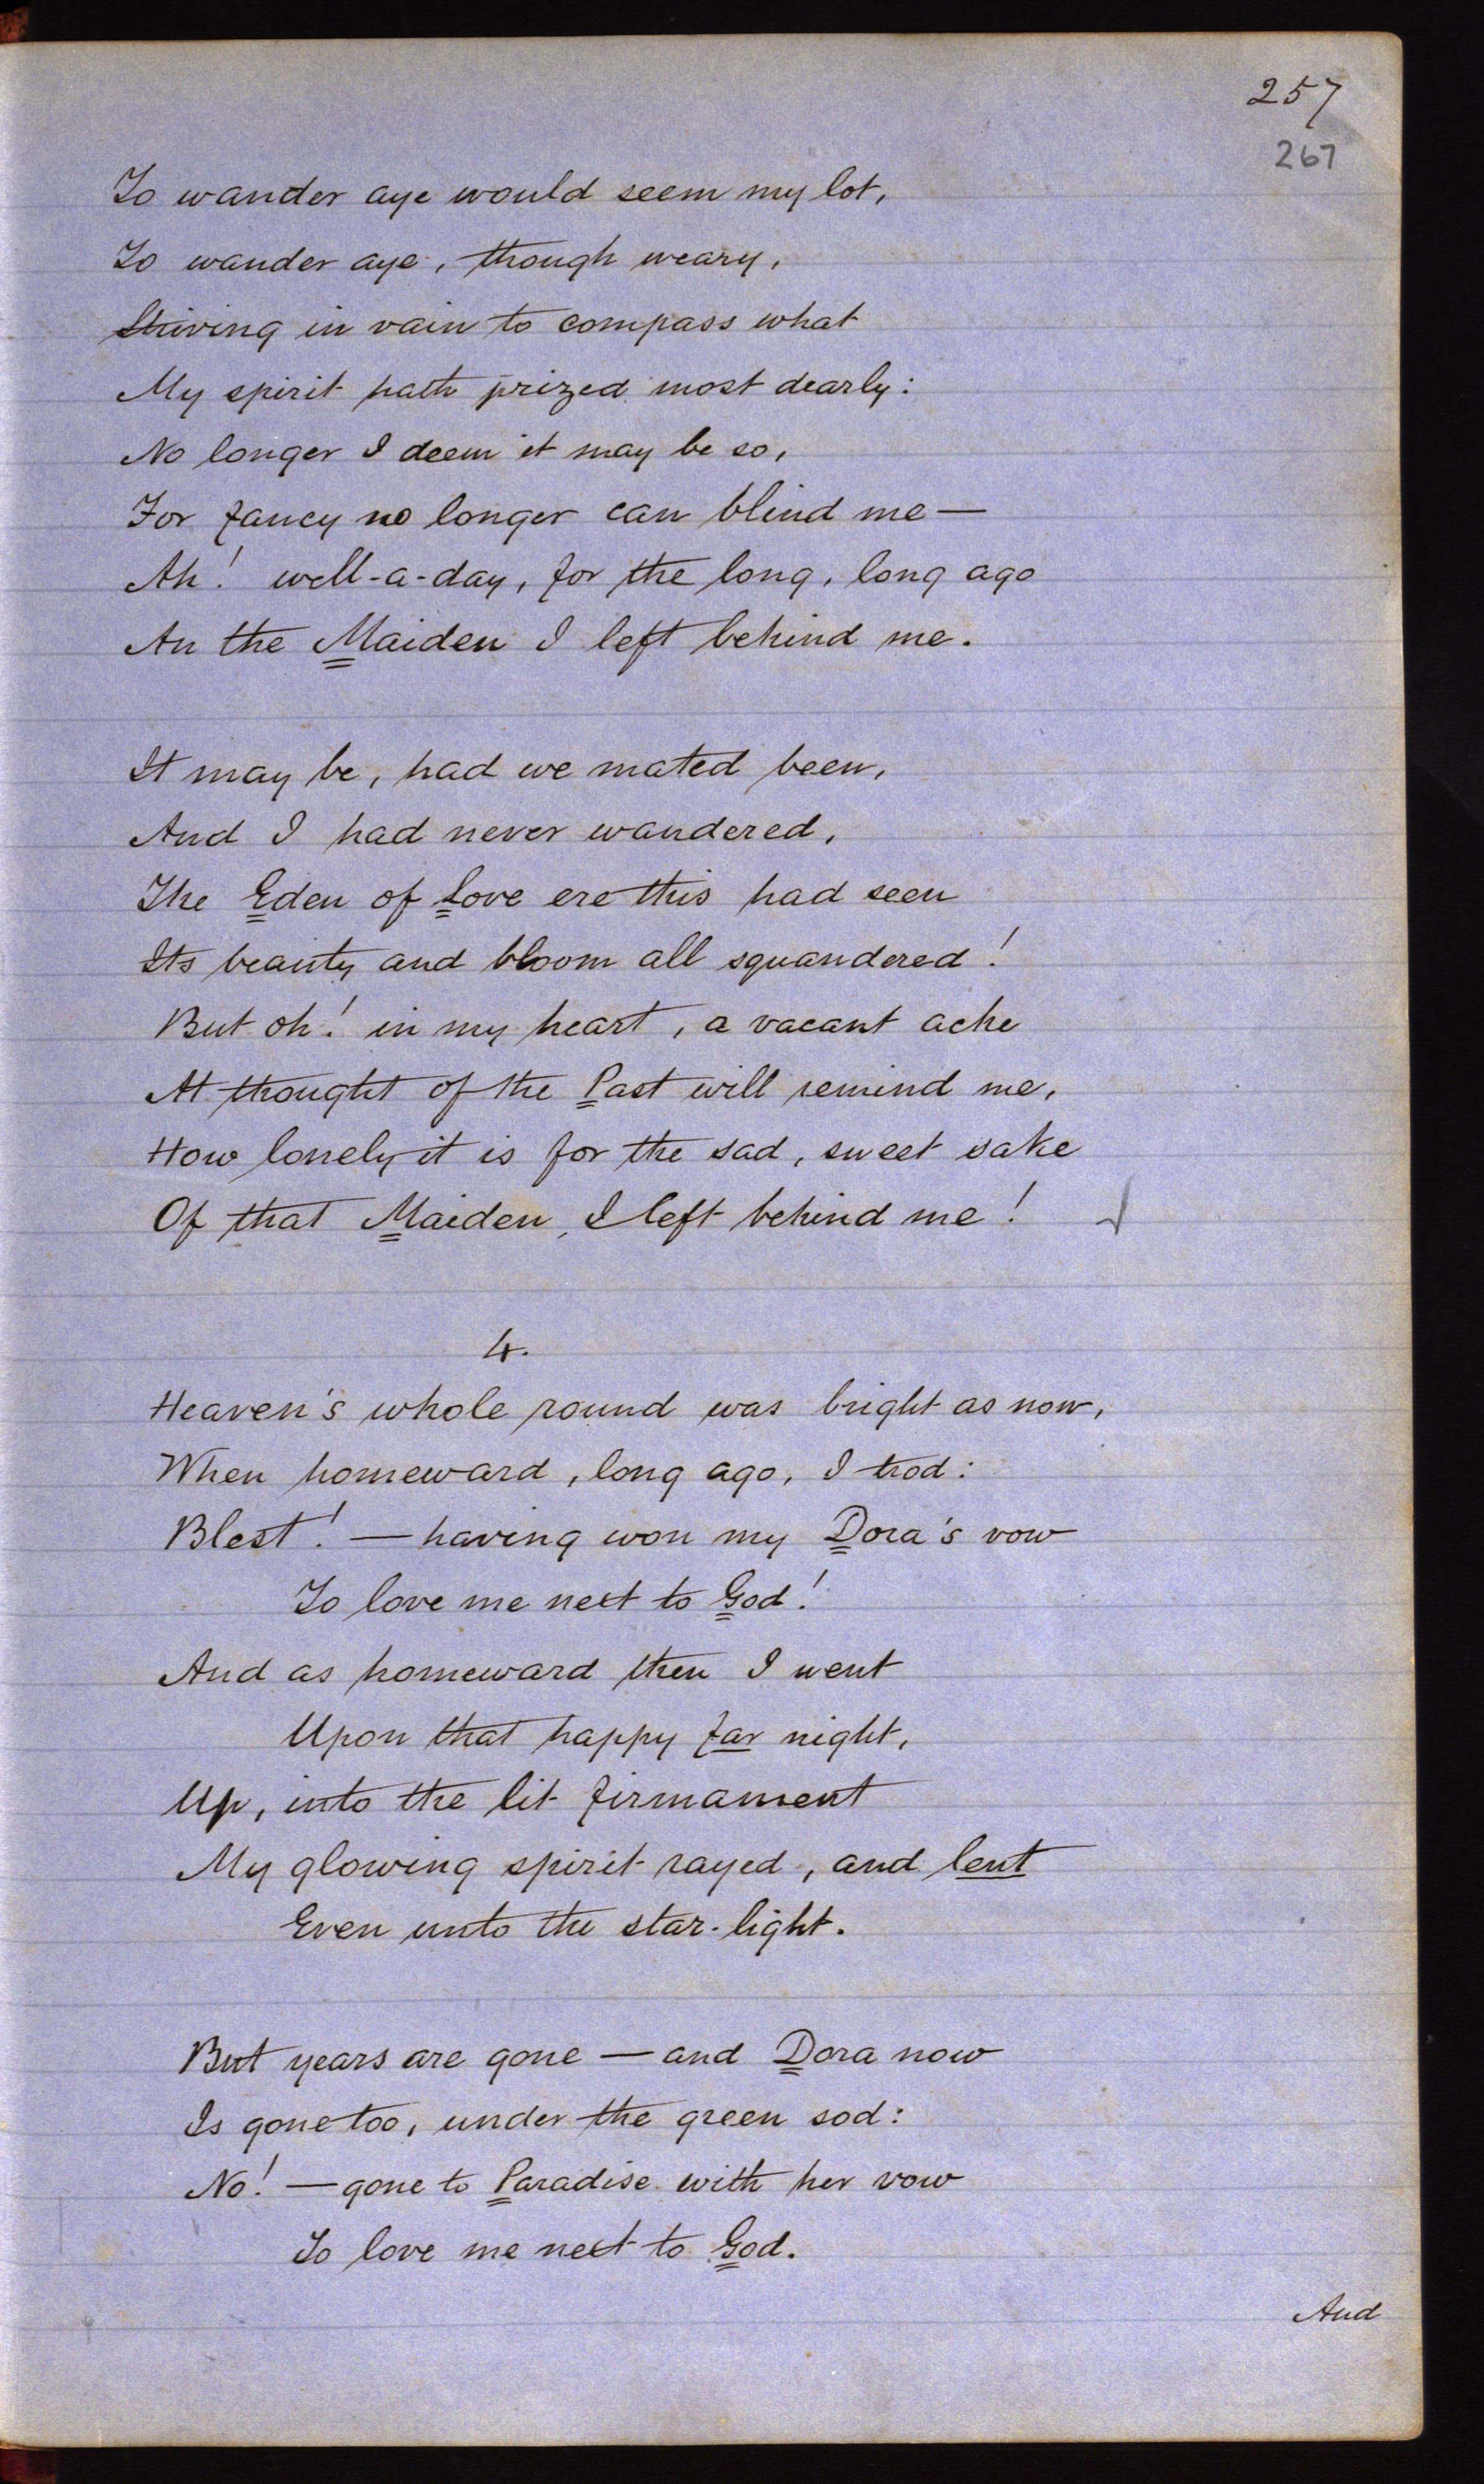 257
267
To wander aye would seem my lot,
To wander aye, though weary,
Striving in vain to compass what
My spirit hath prized most dearly:
No longer I deem it may be so,
For fancy no longer can blind me—
Ah! well-a-day, for the long, long ago
An the Maiden I left behind me.
It may be, had we mated been,
And I had never wandered,
The Eden of Love ere this had seen
Its beauty and bloom all squandered!
But oh! in my heart, a vacant ache
At thought of the Past will remind me,
How lonely it is for the sad, sweet sake
Of that Maiden, I left behind me!
4.
Heaven's whole round was bright as now,
When homeward, long ago, I trod:
Blest! — having won my Dora's vow
To love me next to God!
And as homeward then I went
Upon that happy far night,
Up, into the lit firmament
My glowing spirit rayed, and lent
Even unto the star-light.
But years are gone — and Dora now
Is gone too, under the green sod:
No! — gone to Paradise with her vow
To love me next to God.
And